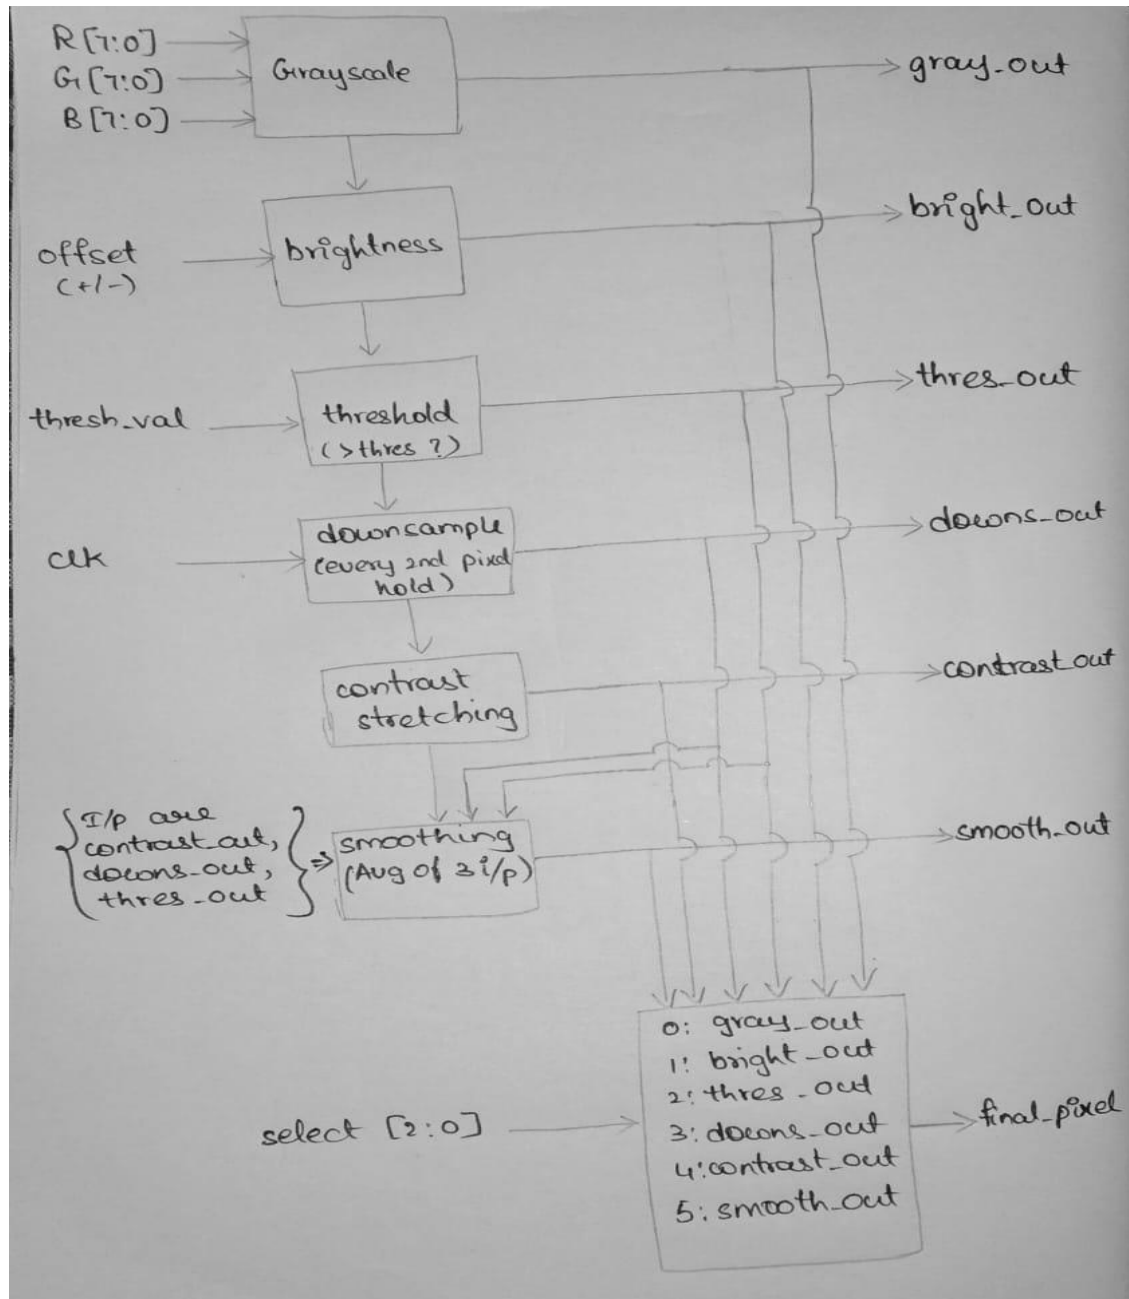 R[7:0]
G[7:0]
B[7:0]
Grayscale
gray_out
offset
(+/-)
brightness
bright_out
thresh_val
threshold
(>thres ?)
thres_out
clk
downsample
(every 2nd pixel
hold)
downs_out
contrast
stretching
contrast_out
I/p are
contrast_out,
downs_out,
thres_out
⇒
smoothing
(Avg of 3 i/p)
smooth_out
select [2:0]
0: gray_out
1: bright_out
2: thres_out
3: downs_out
4: contrast_out
5: smooth_out
final_pixel